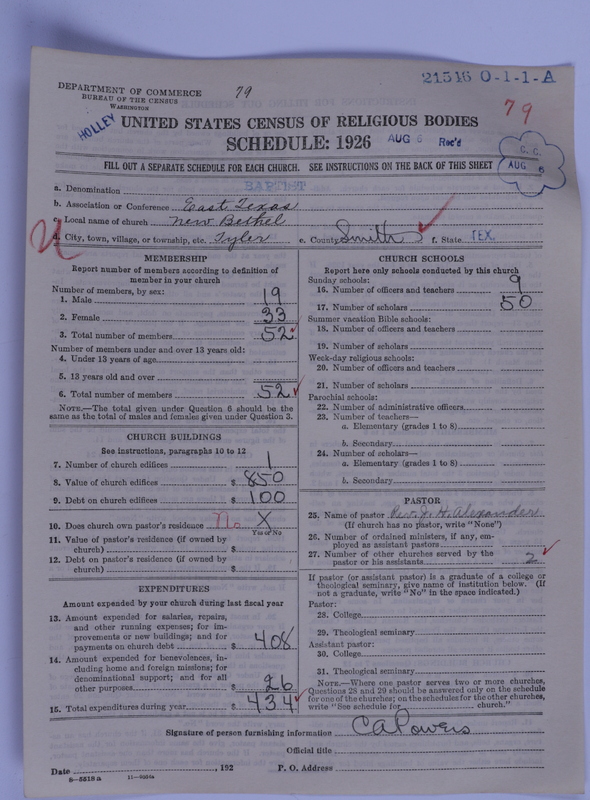 21516 0-1-1-A
DEPARTMENT OF COMMERCE
BUREAU OF THE CENSUS
WASHINGTON
79
79
HOLLEY
UNITED STATES CENSUS OF RELIGIOUS BODIES
SCHEDULE: 1926
AUG 6 Rec'd
C. C.
AUG 6
FILL OUT A SEPARATE SCHEDULE FOR EACH CHURCH. SEE INSTRUCTIONS ON THE BACK OF THIS SHEET
a. Denomination BAPTIST
b. Association or Conference East Texas
c. Local name of church New Bethel
d. City, town, village, or township, etc. Tyler e. County Smith f. State TEX.
MEMBERSHIP
Report number of members according to definition of
member in your church
Number of members, by sex:
1. Male 19
2. Female 33
3. Total number of members 52
Number of members under and over 13 years old:
4. Under 13 years of age
5. 13 years old and over
6. Total number of members 52
NOTE.—The total given under Question 6 should be the
same as the total of males and females given under Question 3.
CHURCH BUILDINGS
See instructions, paragraphs 10 to 12
7. Number of church edifices 1
8. Value of church edifices $ 850
9. Debt on church edifices $ 100
10. Does church own pastor's residence No X
Yes or No
11. Value of pastor's residence (if owned by
church) $
12. Debt on pastor's residence (if owned by
church) $
EXPENDITURES
Amount expended by your church during last fiscal year
13. Amount expended for salaries, repairs,
and other running expenses; for im-
provements or new buildings; and for
payments on church debt $ 408
14. Amount expended for benevolences, in-
cluding home and foreign missions; for
denominational support; and for all
other purposes $ 26
15. Total expenditures during year $ 434
CHURCH SCHOOLS
Report here only schools conducted by this church
Sunday schools:
16. Number of officers and teachers 9
17. Number of scholars 50
Summer vacation Bible schools:
18. Number of officers and teachers
19. Number of scholars
Week-day religious schools:
20. Number of officers and teachers
21. Number of scholars
Parochial schools:
22. Number of administrative officers
23. Number of teachers—
a. Elementary (grades 1 to 8)
b. Secondary
24. Number of scholars—
a. Elementary (grades 1 to 8)
b. Secondary
PASTOR
25. Name of pastor Rev. J. H. Alexander
(If church has no pastor, write "None")
26. Number of ordained ministers, if any, em-
ployed as assistant pastors
27. Number of other churches served by the
pastor or his assistants 2
If pastor (or assistant pastor) is a graduate of a college or
theological seminary, give name of institution below. (If
not a graduate, write "No" in the space indicated.)
Pastor:
28. College
29. Theological seminary
Assistant pastor:
30. College
31. Theological seminary
NOTE.—Where one pastor serves two or more churches,
Questions 28 and 29 should be answered only on the schedule
for one of the churches; on the schedules for the other churches,
write "See schedule for church."
Signature of person furnishing information C A Powers
Official title
Date , 192 P. O. Address
8—5518a 11—9504a